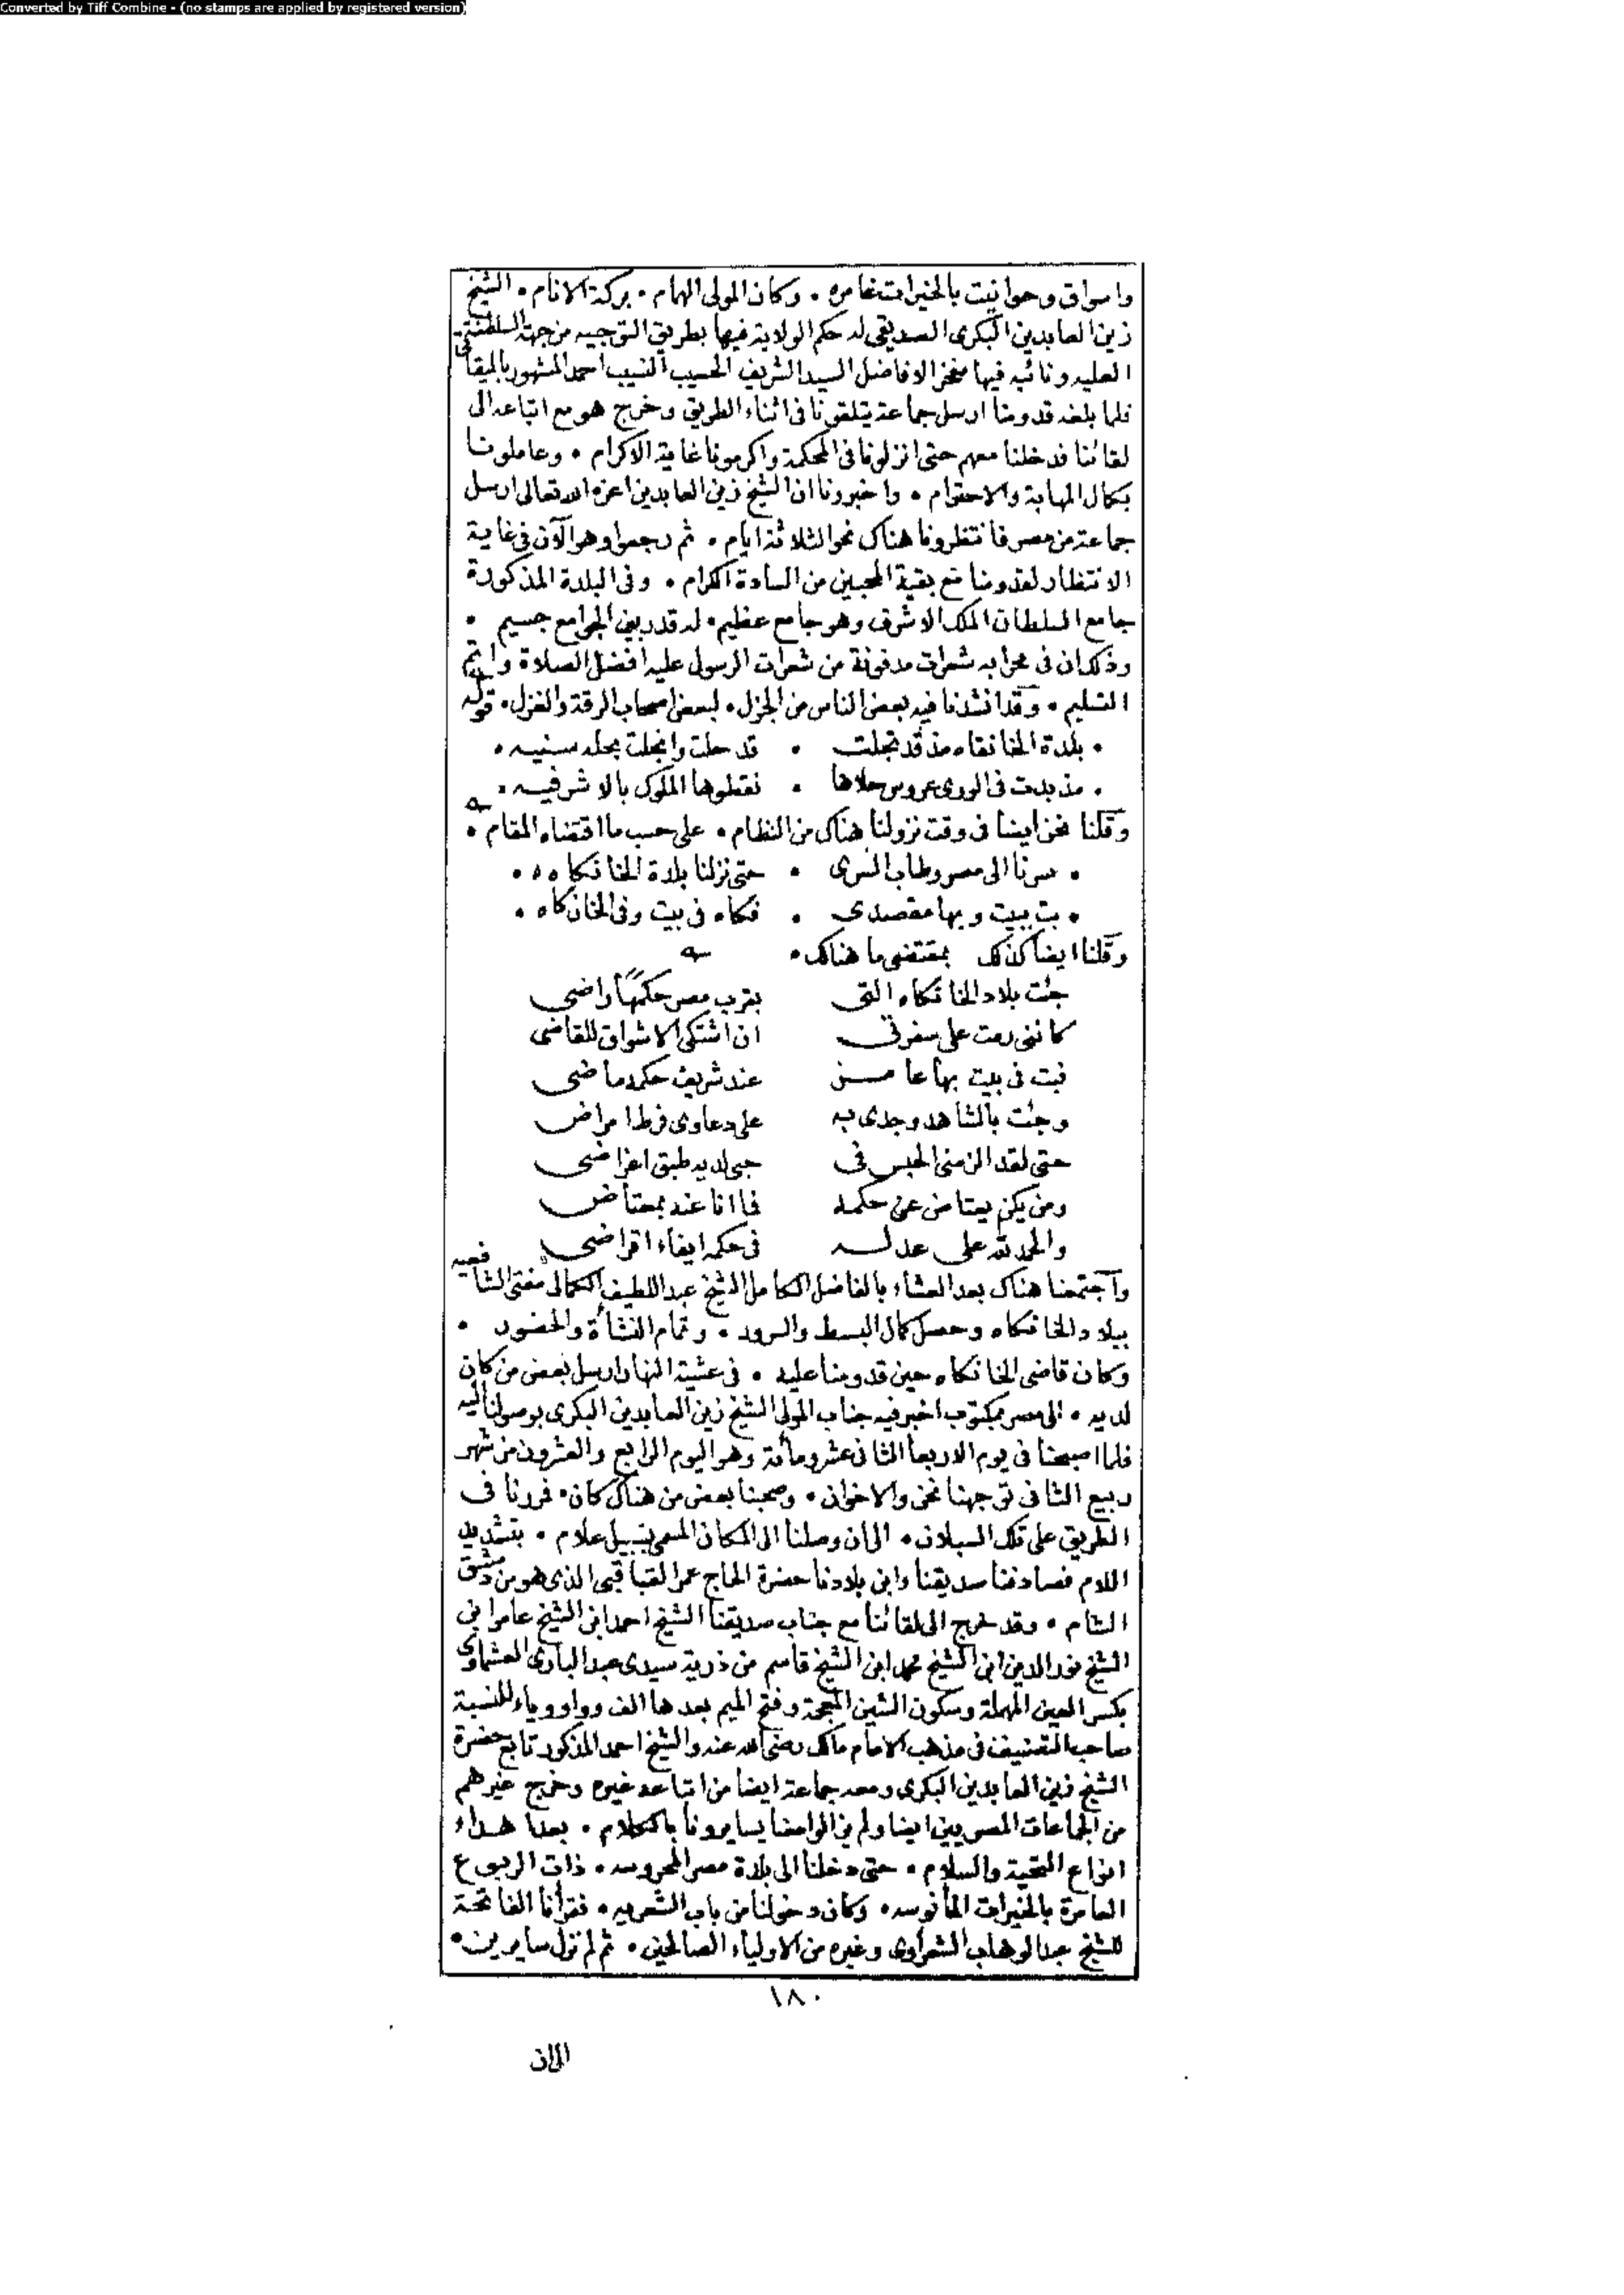 Converted by Tiff Combine - (no stamps are applied by registered version)
واسواق وحوانيت بالخيرات غامره • وكان المولى الهمام • بركة الانام • الشيخ
زين العابدين البكرى الصديقى له حكم الولاية فيها بطريق التوجيه من جهة السلطنة
العليه ونائبه فيها مفخر الافاضل السيد الشريف الحسيب النسيب احمد المشهور بالميقاتى
فلما بلغه قدومنا ارسل جماعة يتلقونا فى اثناء الطريق وخرج هو مع اتباعه الى
لقائنا فدخلنا معهم حتى انزلونا فى المحكمة واكرمونا غاية الاكرام • وعاملونا
بكمال المهابة والاحترام • واخبرونا ان الشيخ زين العابدين اعزه الله تعالى ارسل
جماعة من مصر فانتظرونا هناك نحو الثلاثة ايام • ثم رجعوا وهو الآن فى غاية
الانتظار لقدومنا مع بقية المحبين من السادة الكرام • وفى البلدة المذكورة
جامع السلطان الملك الاشرف وهو جامع عظيم • له قدر بين الجوامع جسيم •
وذكر ان فى محرابه شعرات مدفونة من شعرات الرسول عليه افضل الصلاة واتم
التسليم • وقد انشدنا فيه بعض الناس من الجزل • لبعض اصحاب الرقة والغزل • قوله
• بلدة الخانقاه مذ قد تجلت • قد حلت وانجلت بحله سنيه •
• مذ بدت فى الورى عروس حلاها • نقطوها الملوك بالاشرفيه •
وقلنا نحن ايضا فى وقت نزولنا هناك من النظام • على حسب ما اقتضاه المقام •
• سرنا الى مصر وطاب السرى • حتى نزلنا بلدة الخانكاه •
• بت ببيت وبها مقصدى • فكاه فى بيت وفى الخان كاه •
وقلنا ايضا كذلك بمقتضى ما هناك •
جئت بلاد الخانكاه التى بقرب مصر حكمها راضى
كاننى رمت على سفرتى ان اشتكى الاشواق للقاضى
فبت فى بيت بها عامر عند شريف حكمه ماضى
وجئت بالشاهد وجدى به على دعاوى فرط امراض
حتى لقد الزمنى الحبس فى حبى لديه طبق اغراضى
ومن يكن يعتاض عن حكمه فما انا عنه بمعتاض
والحمد لله على عدله فى حكمه ايفاء اقراضى
واجتمعنا هناك بعد العشاء بالفاضل الكامل الشيخ عبد اللطيف الكمالى مفتى الشافعيه
ببلاد الخانكاه وحصل كمال البسط والسرور • وتمام النشأة والحضور •
وكان قاضى الخانكاه حين قدومنا عليه • فى عشية النهار ارسل بعض من كان
لديه • الى مصر بمكتوب اخبر فيه جناب المولى الشيخ زين العابدين البكرى بوصولنا اليه
فلما اصبحنا فى يوم الاربعا الثانى عشر ومائة وهو اليوم الرابع والعشرون من شهر
ربيع الثانى توجهنا نحن والاخوان • وصحبنا بعض من هناك كان • فمررنا فى
الطريق على تلك السبلان • الى ان وصلنا الى المكان المسمى بسبيل علام • بتشديد
اللام فصادفنا صديقنا وابن بلادنا حضرة الحاج عمر القباقبى الذى هو من دمشق
الشام • وقد خرج الى لقائنا مع جناب صديقنا الشيخ احمد ابن الشيخ عامر ابن
الشيخ نور الدين ابن الشيخ محمد ابن الشيخ قاسم من ذرية سيدى عبد البارى العشماوى
بكسر العين المهملة وسكون الشين المعجمة وفتح الميم بعدها الف وواو وياء للنسبة
صاحب التصنيف فى مذهب الامام مالك رضى الله عنه والشيخ احمد المذكور تابع حضرة
الشيخ زين العابدين البكرى ومعه جماعة ايضا من اتباعه غيره وخرج غيرهم
من الجماعات المصريين ايضا ولم يزالوا معنا يسايرونا بالكلام • بعد اهداء
انواع التحية والسلام • حتى دخلنا الى بلدة مصر المحروسه • ذات الربوع
العامرة بالخيرات المأنوسه • وكان دخولنا من باب الشعريه • فقرأنا الفاتحة
للشيخ عبد الوهاب الشعراوى وغيره من الاولياء الصالحين • ثم لم نزل سايرين •
١٨٠
الى ان